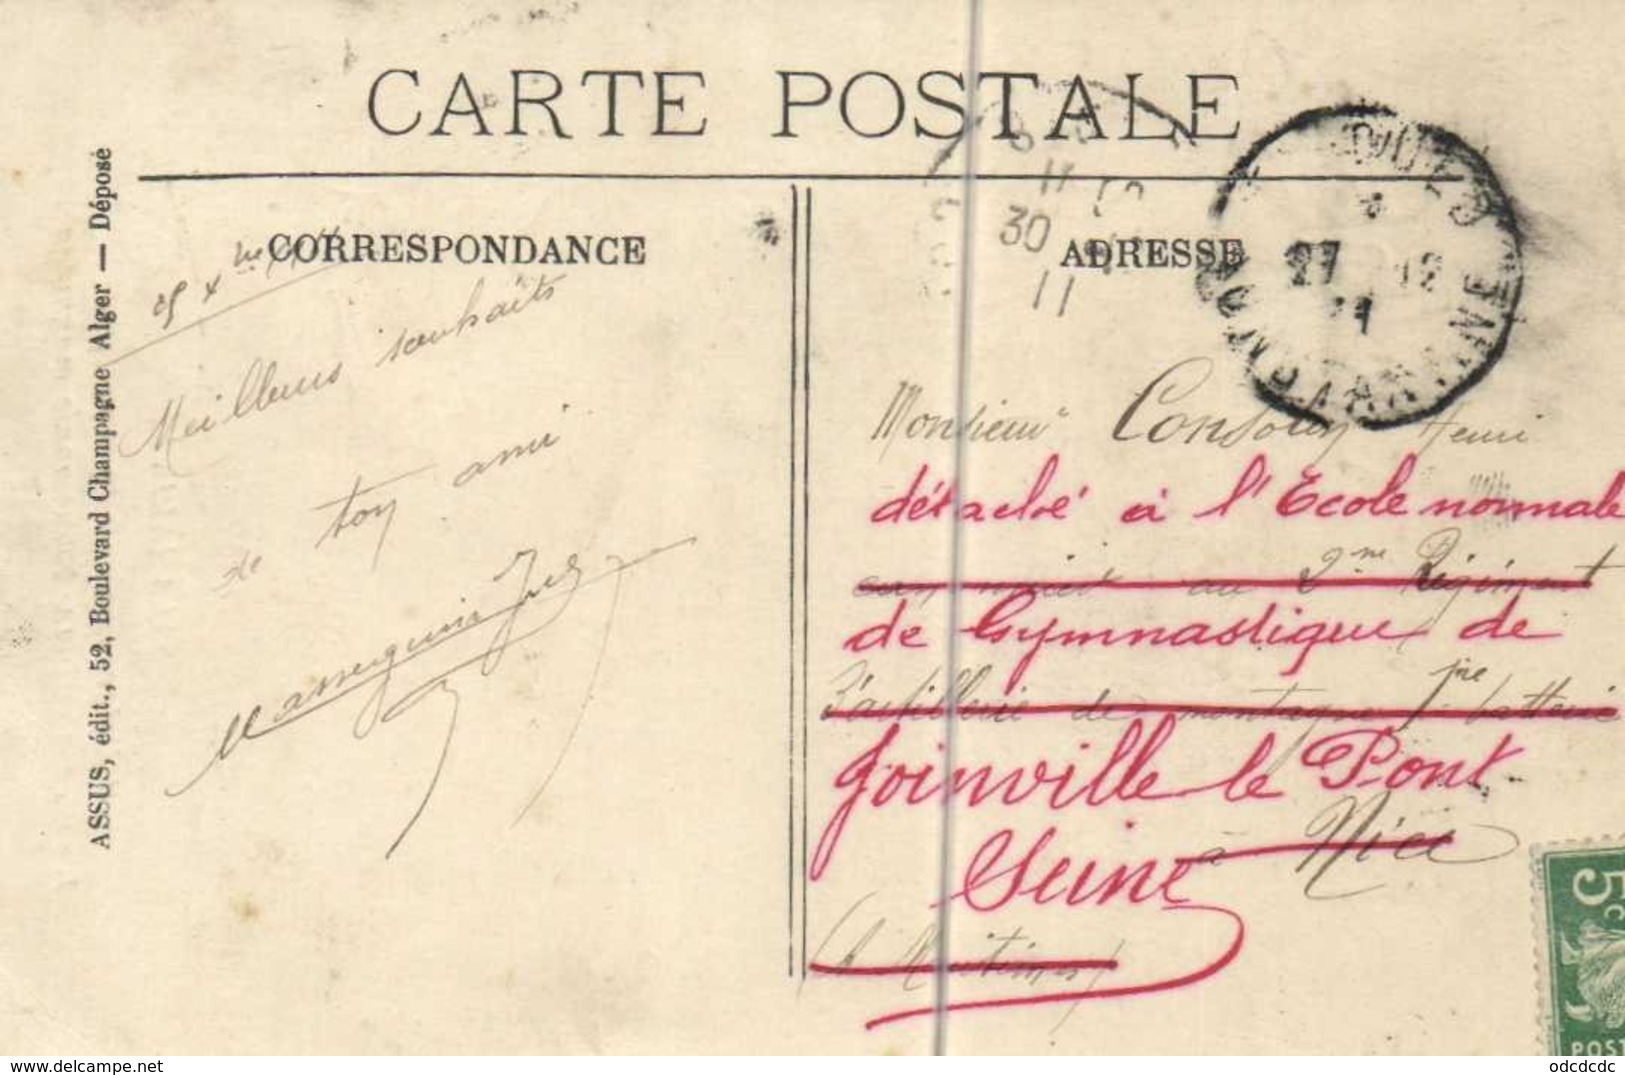 CARTE POSTALE
CORRESPONDANCE
ADRESSE
ASSUS, édit., 52, Boulevard Champagne Alger — Déposé
Meilleurs souhaits
de ton ami
30
11
27 12
11
CONSTANTINE
Monsieur Henri
détaché à l'Ecole normale
au 2me Régiment
de Gymnastique de
d'artillerie de montagne 1re batterie
Joinville le Pont
à Nice
Seine
(A Maritimes)
5c
POST
odcdcdc
delcampe.net